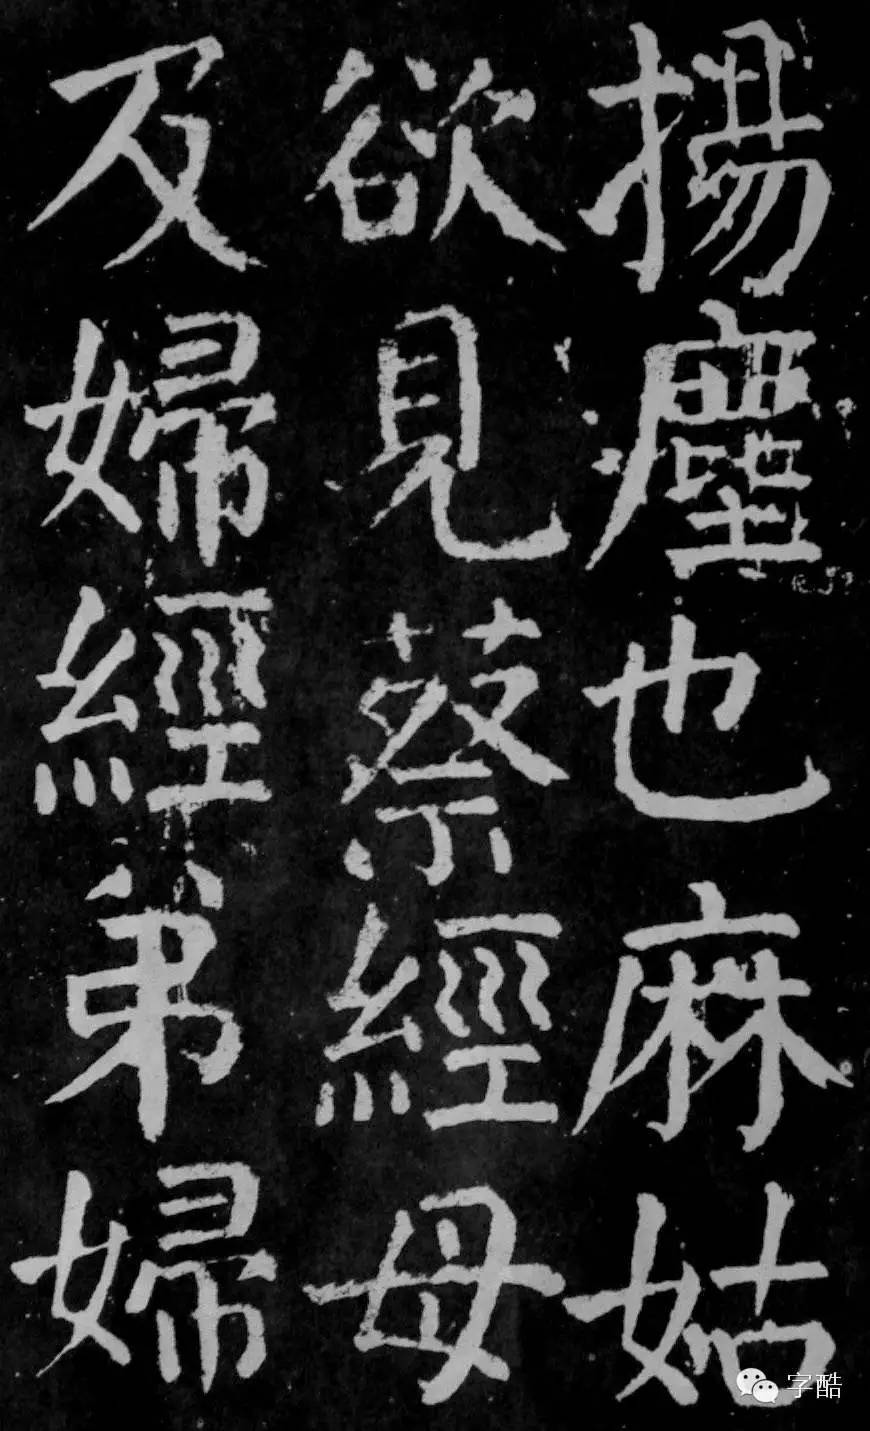 揚塵也麻姑
欲見蔡經母
及婦經弟婦
字酷